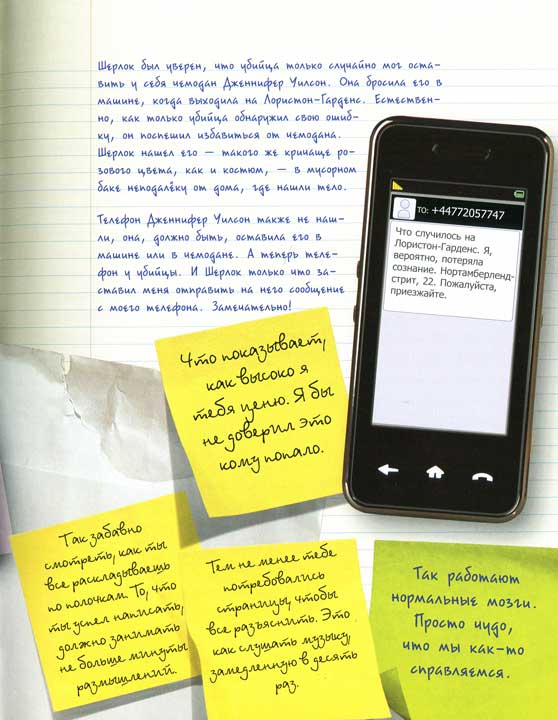 Шерлок был уверен, что убийца только случайно мог оста-
вить у себя чемодан Дженнифер Уилсон. Она бросила его в
машине, когда выходила на Лористон-Гарденс. Естествен-
но, как только убийца обнаружил свою ошиб-
ку, он поспешил избавиться от чемодана.
Шерлок нашел его — такого же кричаще ро-
зового цвета, как и костюм, — в мусорном
баке неподалёку от дома, где нашли тело.
Телефон Дженнифер Уилсон также не наш-
ли, она, должно быть, оставила его в
машине или в чемодане. А теперь теле-
фон у убийцы. И Шерлок только что за-
ставил меня отправить на него сообщение
с моего телефона. Замечательно!
TO: +44772057747
Что случилось на
Лористон-Гарденс. Я,
вероятно, потеряла
сознание. Нортамберленд-
стрит, 22. Пожалуйста,
приезжайте.
Что показывает,
как высоко я
тебя ценю. Я бы
не доверил это
кому попало.
Так забавно
смотреть, как ты
все раскладываешь
по полочкам. То, что
ты успел написать,
должно занимать
не больше минуты
размышлений.
Тем не менее тебе
потребовались
страницы, чтобы
все разъяснить. Это
как слушать музыку,
замедленную в десять
раз.
Так работают
нормальные мозги.
Просто чудо,
что мы как-то
справляемся.